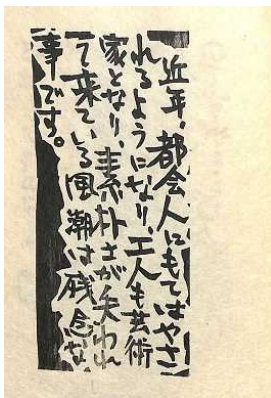 近年、都会人にもてはやさ
れるようになり、工人も芸術
家となり、素朴さが失われ
て来ている風潮は残念な
事です。